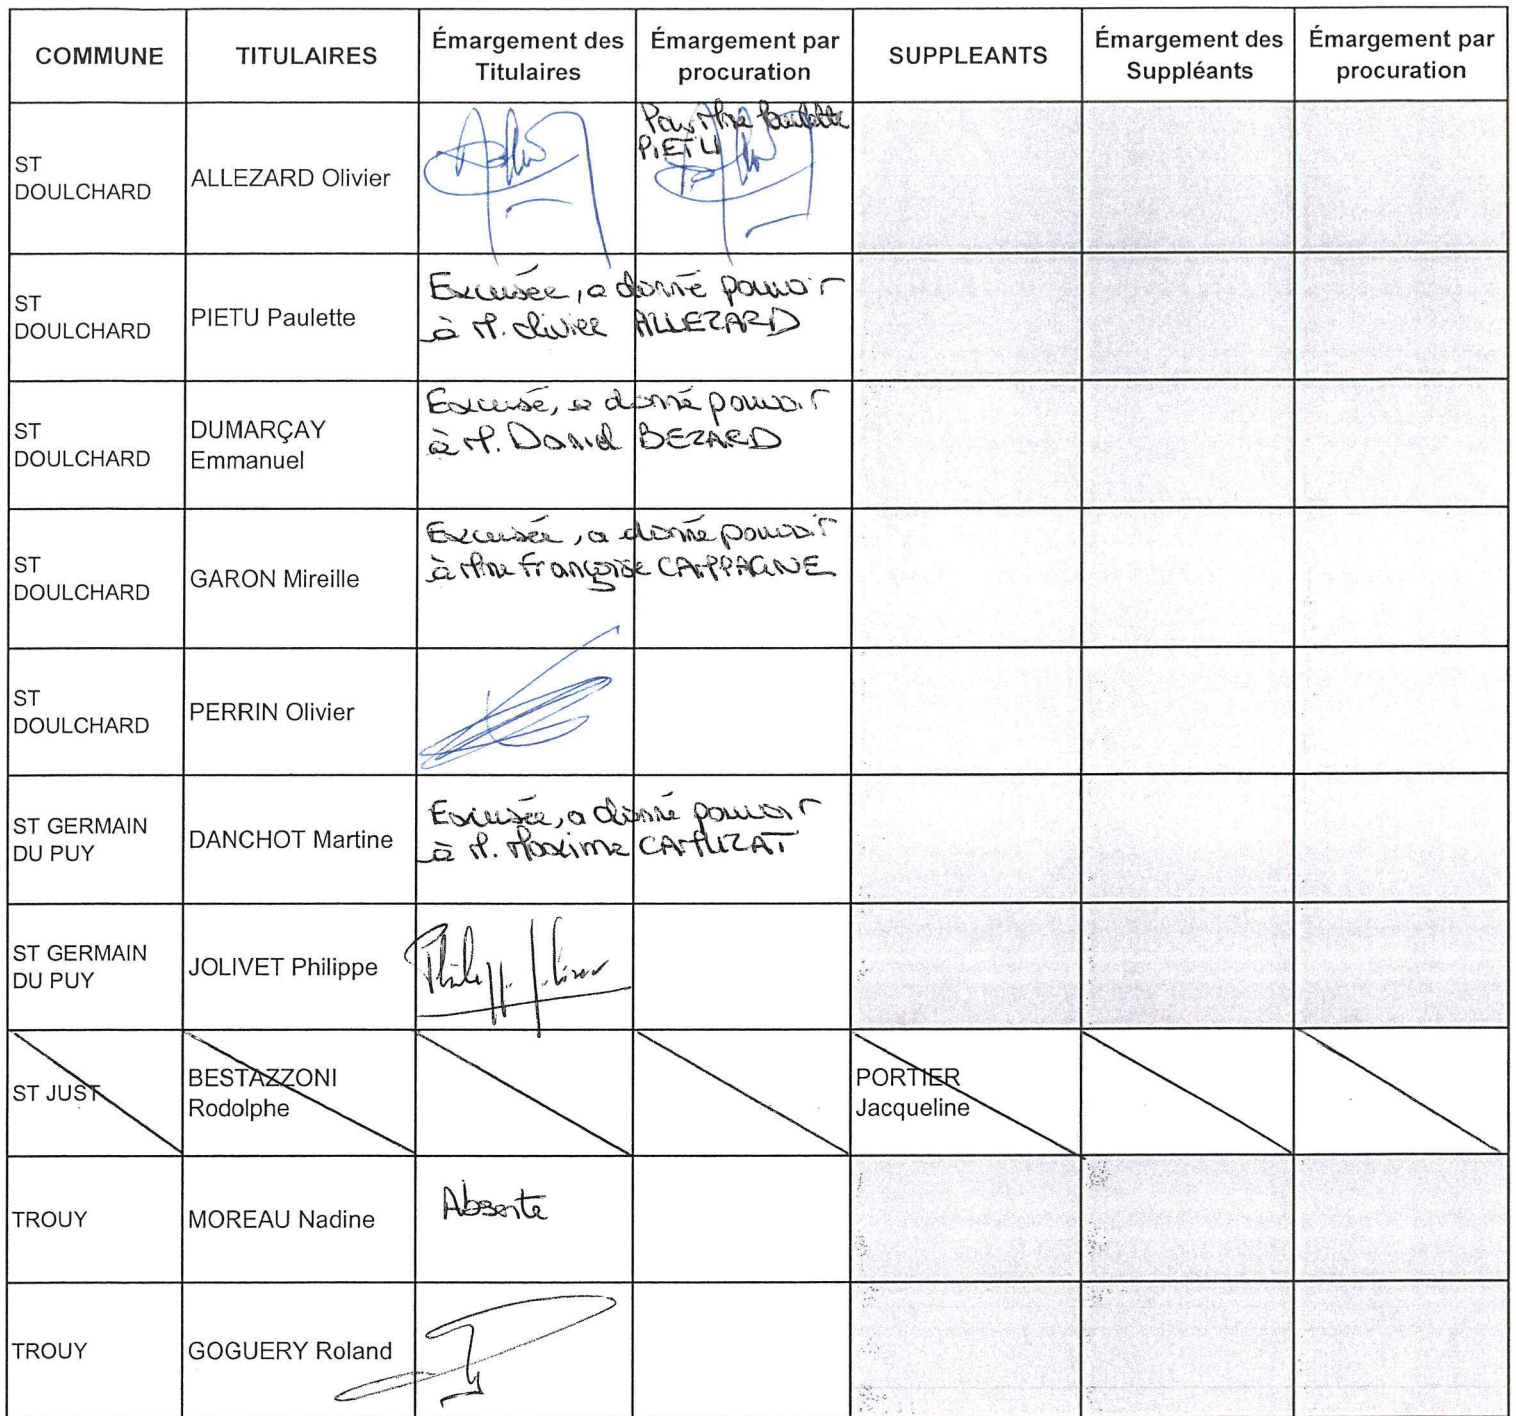 COMMUNE TITULAIRES Émargement des Titulaires Émargement par procuration SUPPLEANTS Émargement des Suppléants Émargement par procuration
Pour Mme Paulette
PIETU
ST
DOULCHARD
ALLEZARD Olivier
ST
DOULCHARD
PIETU Paulette
Excusée, a donné pouvoir
à M. Olivier ALLEZARD
ST
DOULCHARD
DUMARÇAY
Emmanuel
Excusé, a donné pouvoir
à M. Daniel BEZARD
ST
DOULCHARD
GARON Mireille
Excusée, a donné pouvoir
à Mme Françoise CAMPAGNE
ST
DOULCHARD
PERRIN Olivier
ST GERMAIN
DU PUY
DANCHOT Martine
Excusée, a donné pouvoir
à M. Maxime CAMUZAT
ST GERMAIN
DU PUY
JOLIVET Philippe
ST JUST
BESTAZZONI
Rodolphe
PORTIER
Jacqueline
TROUY
MOREAU Nadine
Absente
TROUY
GOGUERY Roland